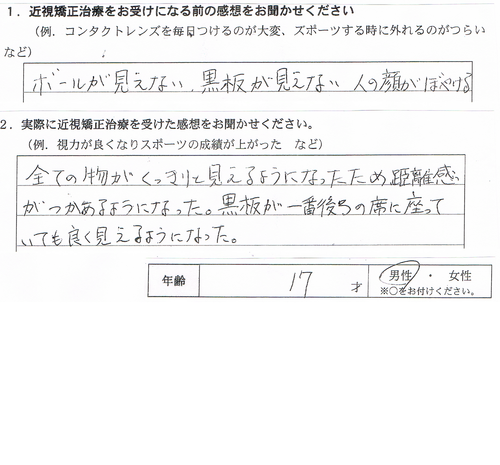 1．近視矯正治療をお受けになる前の感想をお聞かせください
（例．コンタクトレンズを毎日つけるのが大変、ズポーツする時に外れるのがつらい
など）
ボールが見えない、黒板が見えない 人の顔がぼやける
2．実際に近視矯正治療を受けた感想をお聞かせください。
（例．視力が良くなりスポーツの成績が上がった など）
全ての物がくっきりと見えるようになったため距離感
がつかめるようになった。黒板が一番後ろの席に座って
いても良く見えるようになった。
年齢 17 才 男性 ・ 女性
※○をお付けください。